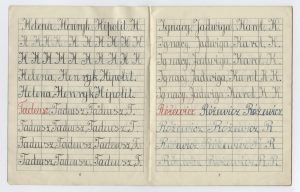 Helena, Henryk, Hipolit, H.
H H H H H H H H H
H H H H H H H H H
Helena, Henryk, Hipolit.
Helena, Henryk Hipolit.
Tadeusz, Tadeusz, Tadeusz, T.
Tadeusz, Tadeusz, Tadeusz, T.
Tadeusz, Tadeusz, Tadeusz, T.
Tadeusz, Tadeusz, Tadeusz, T.
Tadeusz, Tadeusz, Tadeusz, T.
Ignacy, Jadwiga, Karol. K.
Ignacy, Jadwiga, Karol. K.
Ignacy, Jadwiga, Karol. K.
Ignacy, Jadwiga, Karol. K.
Ignacy, Jadwiga, Karol. K.
Różewicz, Różewicz, Różewicz
Różewicz, Różewicz, R
Różewicz, Różewicz, R
Różewicz, Różewicz, R
Różewicz, Różewicz, R